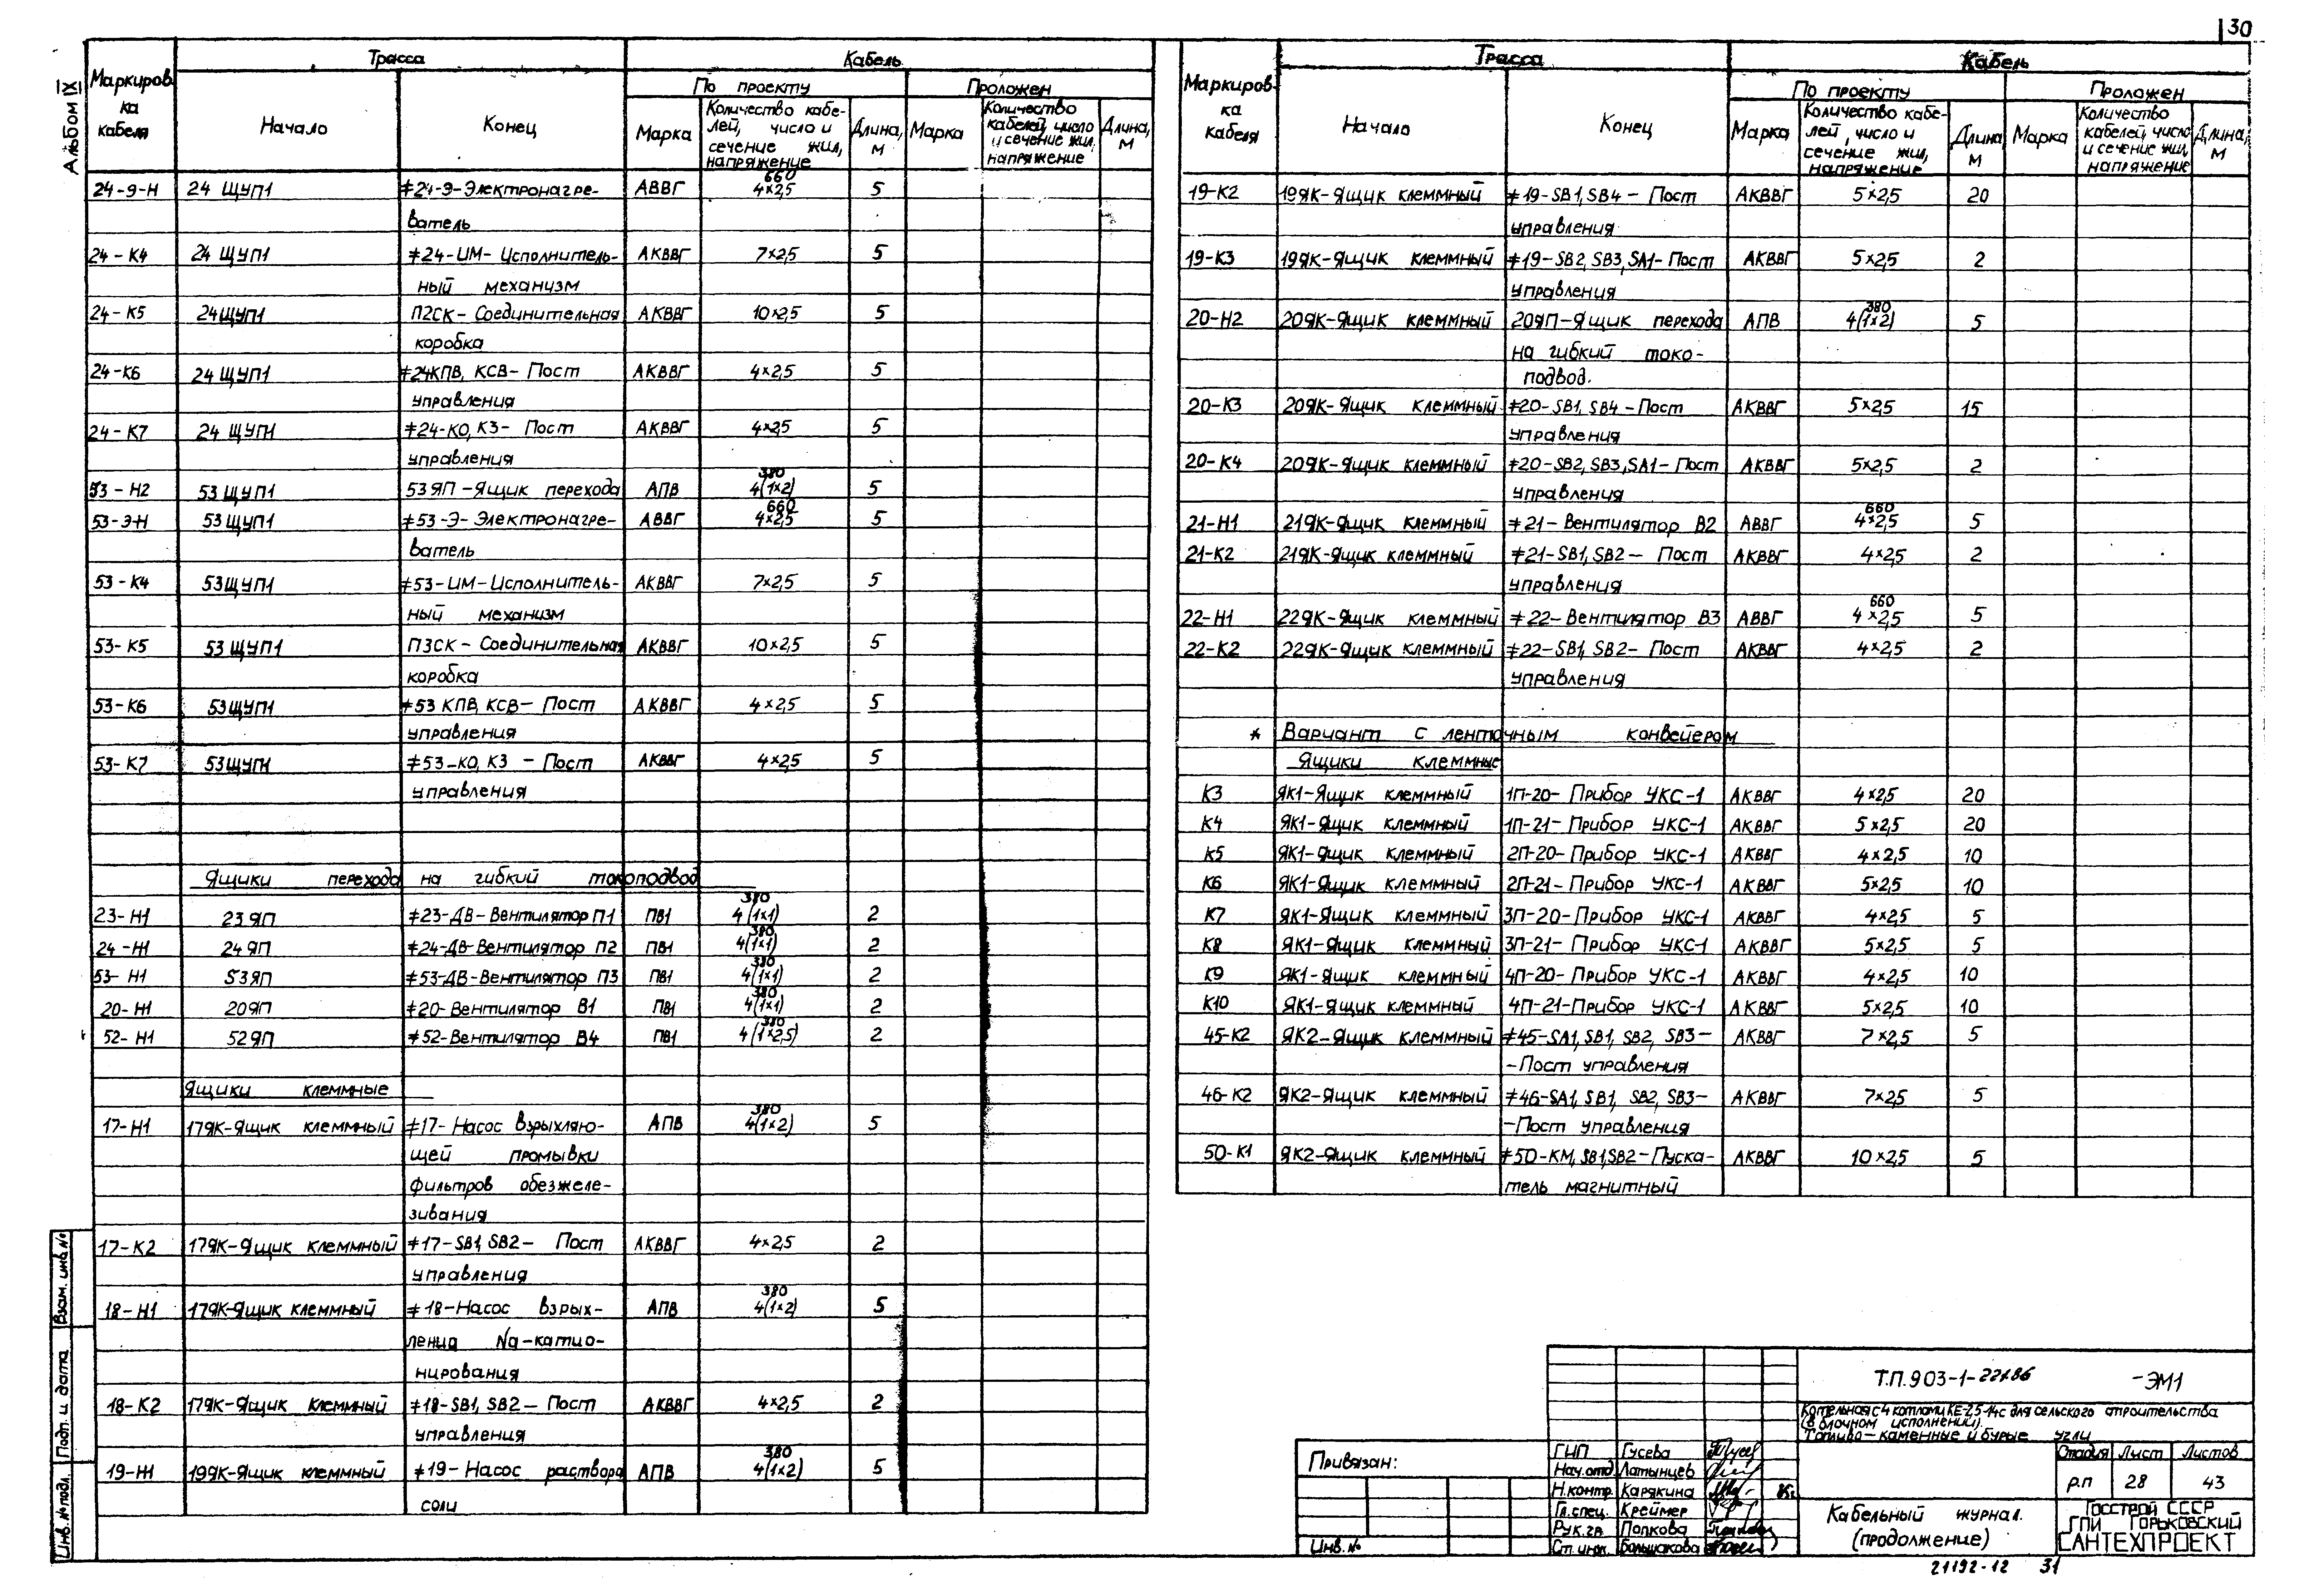 30
Альбом IX
Маркиров-
ка
кабеля
Трасса
Кабель
Начало
Конец
По проекту
Проложен
Марка
Количество кабе-
лей, число и
сечение жил,
напряжение
Длина,
м
Марка
Количество
кабелей, число
и сечение жил,
напряжение
Длина,
м
24-Э-Н 24 ЩУП1 ≠24-Э-Электронагре- АВВГ 660 4×2,5 5
ватель
24-К4 24 ЩУП1 ≠24-ИМ-Исполнитель- АКВВГ 7×2,5 5
ный механизм
24-К5 24ЩУП1 П2СК-Соединительная АКВВГ 10×2,5 5
коробка
24-К6 24 ЩУП1 ≠24КПВ, КСВ-Пост АКВВГ 4×2,5 5
управления
24-К7 24 ЩУП1 ≠24-КО, КЗ- Пост АКВВГ 4×2,5 5
управления
53-Н2 53 ЩУП1 53ЯП-Ящик перехода АПВ 380 4(1×2) 5
53-Э-Н 53 ЩУП1 ≠53-Э-Электронагре- АВВГ 660 4×2,5 5
ватель
53-К4 53ЩУП1 ≠53-ИМ-Исполнитель- АКВВГ 7×2,5 5
ный механизм
53-К5 53 ЩУП1 П3СК-Соединительная АКВВГ 10×2,5 5
коробка
53-К6 53ЩУП1 ≠53 КПВ, КСВ-Пост АКВВГ 4×2,5 5
управления
53-К7 53ЩУП1 ≠53-КО, КЗ - Пост АКВВГ 4×2,5 5
управления
Ящики перехода на гибкий токоподвод
23-Н1 23ЯП ≠23-ДВ-Вентилятор П1 ПВ1 380 4(1×1) 2
24-Н1 24ЯП ≠24-ДВ-Вентилятор П2 ПВ1 380 4(1×1) 2
53-Н1 53ЯП ≠53-ДВ-Вентилятор П3 ПВ1 380 4(1×1) 2
20-Н1 20ЯП ≠20-Вентилятор В1 ПВ1 380 4(1×1) 2
52-Н1 52ЯП ≠52-Вентилятор В4 ПВ1 380 4(1×2,5) 2
Ящики клеммные
17-Н1 17ЯК-Ящик клеммный ≠17-Насос взрыхляю- АПВ 380 4(1×2) 5
щей промывки
фильтров обезжеле-
зивания
17-К2 17ЯК-Ящик клеммный ≠17-SB1, SB2- Пост АКВВГ 4×2,5 2
управления
18-Н1 17ЯК-Ящик клеммный ≠18-Насос взрых- АПВ 380 4(1×2) 5
ления Na-катио-
нирования
18-К2 17ЯК-Ящик клеммный ≠18-SB1, SB2-Пост АКВВГ 4×2,5 2
управления
19-Н1 19ЯК-Ящик клеммный ≠19-Насос раствора АПВ 380 4(1×2) 5
соли
Маркиров-
ка
кабеля
Трасса
Кабель
Начало
Конец
По проекту
Проложен
Марка
Количество кабе-
лей, число и
сечение жил,
напряжение
Длина
м
Марка
Количество
кабелей, число
и сечение жил,
напряжение
Длина,
м
19-К2 19ЯК-Ящик клеммный ≠19-SB1, SB4-Пост АКВВГ 5×2,5 20
управления
19-К3 19ЯК-Ящик клеммный ≠19-SB2, SB3, SA1-Пост АКВВГ 5×2,5 2
управления
20-Н2 20ЯК-Ящик клеммный 20ЯП-Ящик перехода АПВ 380 4(1×2) 5
на гибкий токо-
подвод.
20-К3 20ЯК-Ящик клеммный ≠20-SB1, SB4-Пост АКВВГ 5×2,5 15
управления
20-К4 20ЯК-Ящик клеммный ≠20-SB2, SB3, SA1-Пост АКВВГ 5×2,5 2
управления
21-Н1 21ЯК-Ящик клеммный ≠21-Вентилятор В2 АВВГ 660 4×2,5 5
21-К2 21ЯК-Ящик клеммный ≠21-SB1, SB2- Пост АКВВГ 4×2,5 2
управления
22-Н1 22ЯК-Ящик клеммный ≠22-Вентилятор В3 АВВГ 660 4×2,5 5
22-К2 22ЯК-Ящик клеммный ≠22-SB1, SB2-Пост АКВВГ 4×2,5 2
управления
* Вариант с ленточным конвейером
Ящики клеммные
К3 ЯК1-Ящик клеммный 1П-20-Прибор УКС-1 АКВВГ 4×2,5 20
К4 ЯК1-Ящик клеммный 1П-21-Прибор УКС-1 АКВВГ 5×2,5 20
К5 ЯК1-Ящик клеммный 2П-20-Прибор УКС-1 АКВВГ 4×2,5 10
К6 ЯК1-Ящик клеммный 2П-21-Прибор УКС-1 АКВВГ 5×2,5 10
К7 ЯК1-Ящик клеммный 3П-20-Прибор УКС-1 АКВВГ 4×2,5 5
К8 ЯК1-Ящик клеммный 3П-21-Прибор УКС-1 АКВВГ 5×2,5 5
К9 ЯК1-Ящик клеммный 4П-20-Прибор УКС-1 АКВВГ 4×2,5 10
К10 ЯК1-Ящик клеммный 4П-21-Прибор УКС-1 АКВВГ 5×2,5 10
45-К2 ЯК2-Ящик клеммный ≠45-SA1, SB1, SB2, SB3- АКВВГ 7×2,5 5
-Пост управления
46-К2 ЯК2-Ящик клеммный ≠46-SA1, SB1, SB2, SB3- АКВВГ 7×2,5 5
-Пост управления
50-К1 ЯК2-Ящик клеммный ≠50-КМ, SB1, SB2-Пуска- АКВВГ 10×2,5 5
тель магнитный
Инв. № подл. Подп. и дата Взам. инв. №
Привязан:
Инв. №
Т.П. 903-1-221.86 -ЭМ1
Котельная с 4 котлами КЕ-2,5-14с для сельского строительства
(в блочном исполнении).
Топливо-каменные и бурые угли
ГИП Гусева
Нач.отд. Латынцев
Н.контр. Карякина
Гл.спец. Креймер
Рук.гр. Попкова
Ст.инж. Большакова
Стадия Лист Листов
р.п 28 43
Кабельный журнал.
(продолжение)
ГОССТРОЙ СССР
ГПИ ГОРЬКОВСКИЙ
САНТЕХПРОЕКТ
21192-12 31